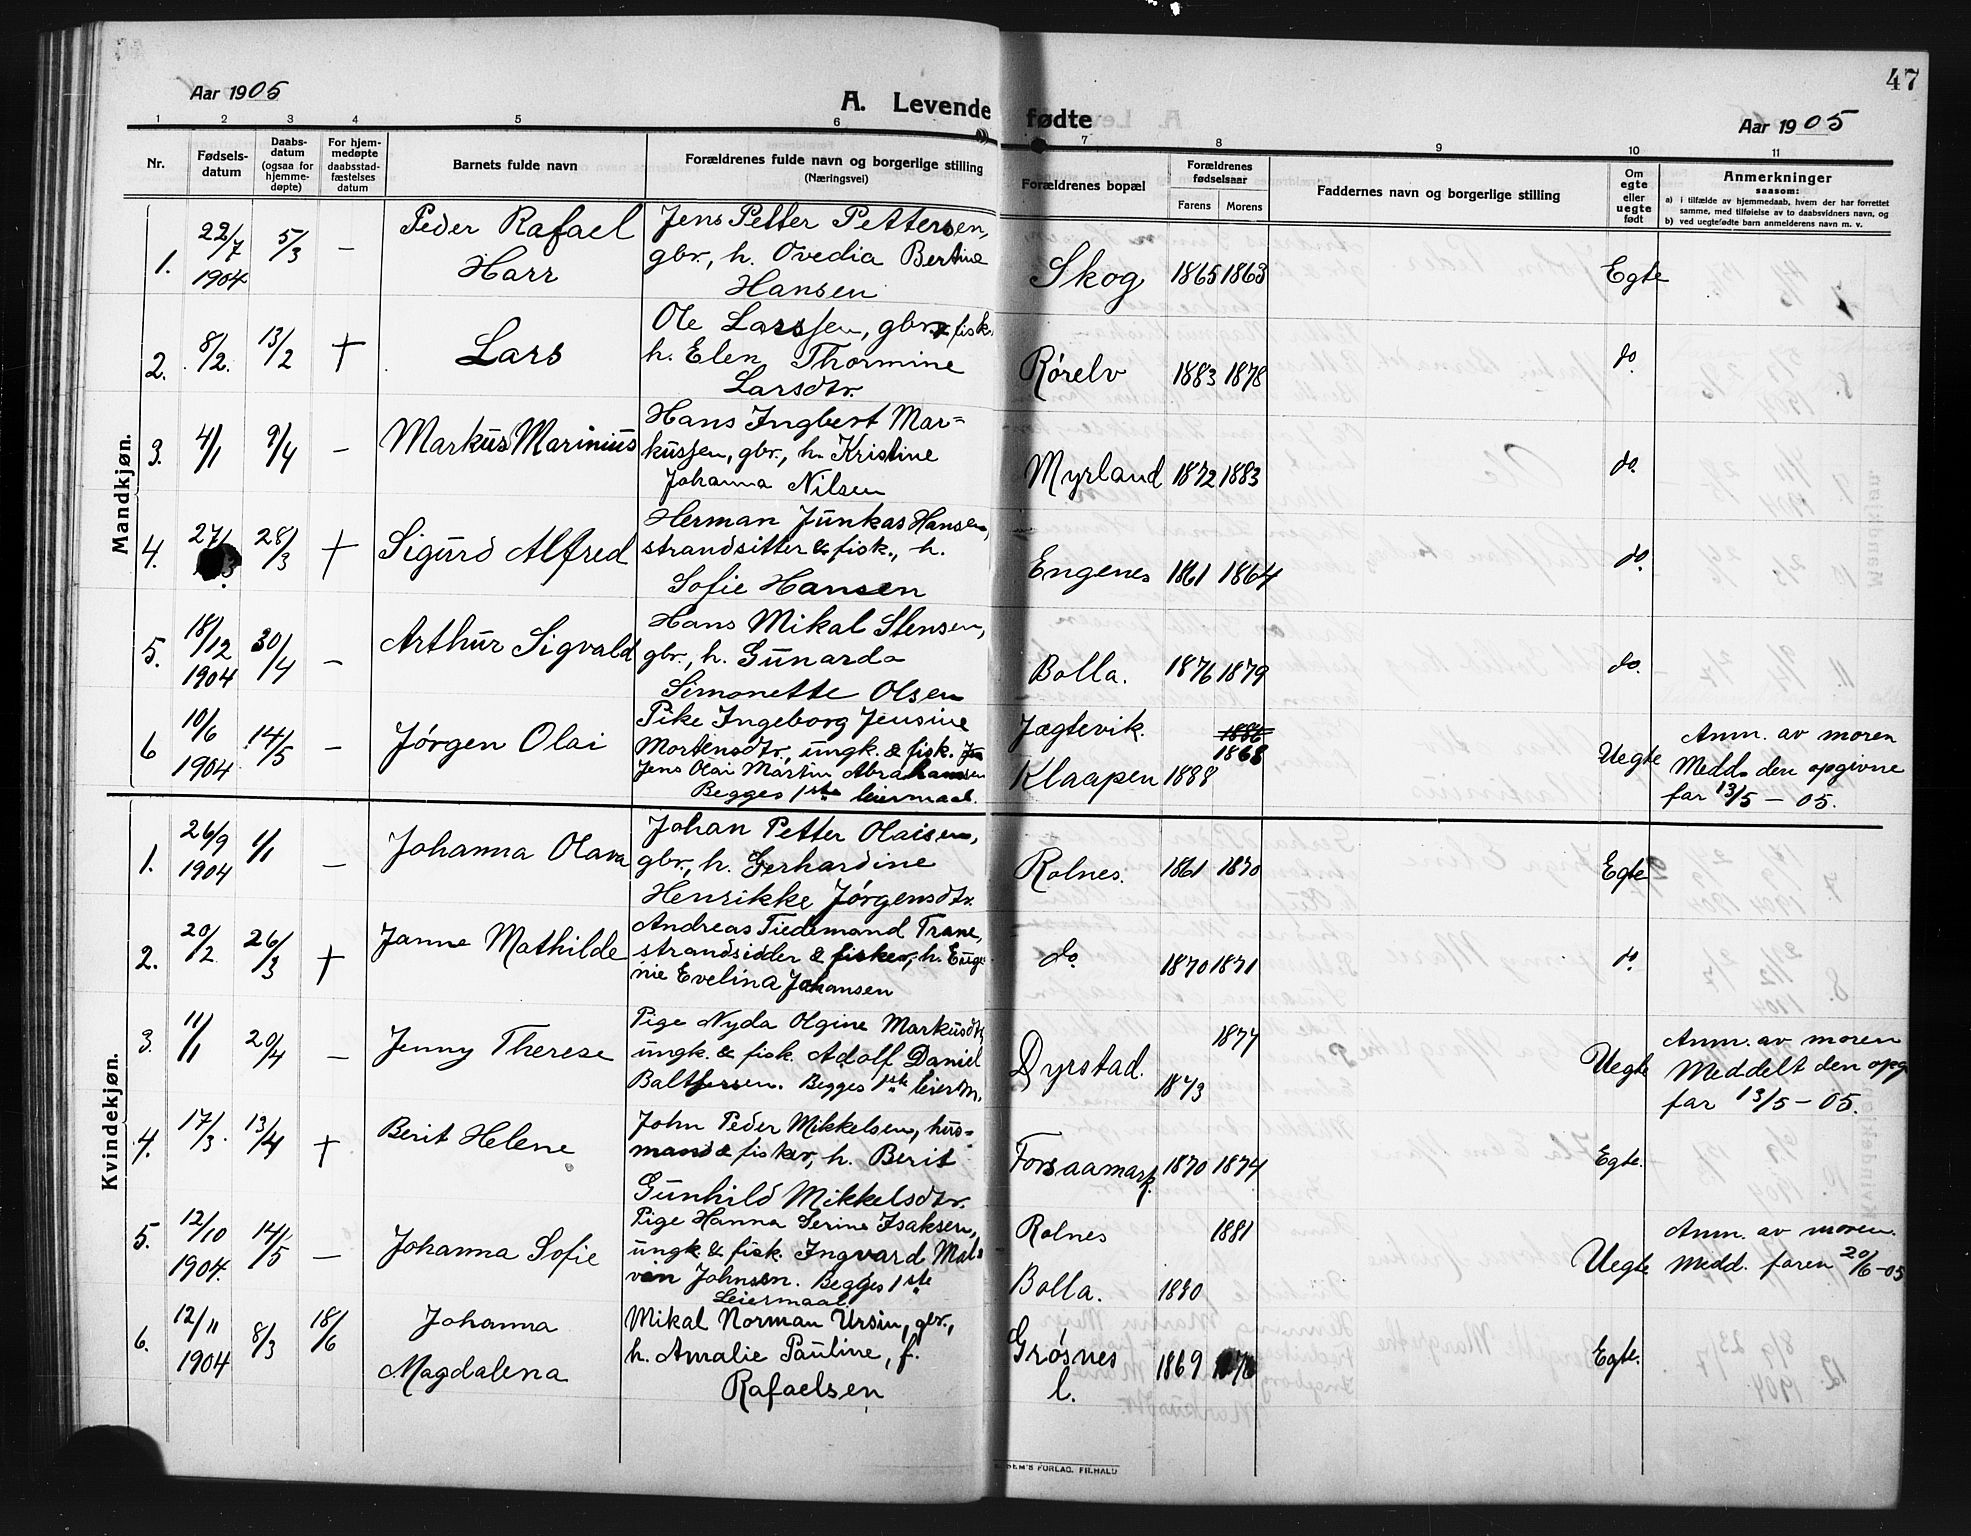 47
Aar 1905
A. Levende fødte
Aar 1905
1 2 3 4 5 6 7 8 9 10 11
Nr.
Fødsels-
datum
Daabs-
datum
(ogsaa for
hjemme-
døpte)
For hjem-
medøpte
daabsstad-
fæstelses
datum
Barnets fulde navn
Forældrenes fulde navn og borgerlige stilling
(Næringsvei)
Forældrenes bopæl
Forældrenes
fødselsaar
Farens Morens
Faddernes navn og borgerlige stilling
Om
egte
eller
uegte
født
Anmerkninger
saasom:
a) i tilfælde av hjemmedaab, hvem der har forrettet
samme, med tilføielse av to daabsvidners navn, og
b) ved uegtefødte barn anmelderens navn m. v.
Mandkjøn.
1. 22/7 1904 5/3 –
Peder Rafael
Harr
Jens Petter Pettersen,
gbr., h. Ovedia Bertine
Hansen
Skog 1865 1863 Egte
2. 8/2. 13/2 +
Lars
Ole Larssen, gbr. & fisk.
h. Elen Thormine
Larsdtr.
Rørelv 1883 1878 do.
3. 4/1 9/4 –
Markus Marinius
Hans Ingbert Mar-
kussen, gbr., h. Kristine
Johanna Nilsen
Myrland 1872 1883 do.
4. 27/ 28/3 +
Sigurd Alfred
Herman Junkas Hansen,
strandsitter & fisk., h.
Sofie Hansen
Engenes 1861 1864 do.
5. 18/12 1904 30/4 –
Arthur Sigvald
Hans Mikal Stensen,
gbr., h. Gunarda
Simonette Olsen
Bolla. 1876 1879 do.
6 10/6 1904 14/5 –
Jørgen Olai
Pike Ingeborg Jensine
Mortensdtr., ungk. & fisk.
Jens Olai Martin Abrahamsen
Begges 1ste leiermaal.
Jægtevik. 1886 1868
Klaapen 1888
Uegte
Anm. av moren
Medd. den opgivne
far 13/5 – 05.
Kvindekjøn.
1. 26/9 1904 1/1 –
Johanna Olava
Johan Petter Olaisen,
gbr., h. Gerhardine
Henrikke Jørgensdtr.
Rolnes. 1861 1870 Egte
2. 20/2. 26/3 +
Janne Mathilde
Andreas Tiedemand Trane,
strandsidder & fisker, h. Euge-
nie Evelina Johansen
do. 1870 1871 do.
3. 11/1 20/4 –
Jenny Therese
Pige Nyda Olgine Markusdtr,
ungk. & fisk. Adolf Daniel
Baltsersen. Begges 1ste leierm.
Dyrstad. 1873 1877
Uegte
Anm. av moren
Meddelt den opg.
far 13/5 – 05.
4. 17/3. 13/4 +
Berit Helene
John Peder Mikkelsen, hus-
mand & fisker, h. Berit
Gunhild Mikkelsdtr.
Forsaamark. 1870 1874 Egte.
5. 12/10 1904. 14/5 –
Johanna Sofie
Pige Hanna Serine Isaksen,
ungk & fisk. Ingvard Mal-
vin Johnsen. Begges 1ste
Leiermaal.
Rolnes 1881
Bolla. 1880
Uegte
Anm. av moren.
Medd. faren 20/6 – 05
6. 12/11 1904 8/3 18/6
Johanna
Magdalena
Mikal Norman Ursin, gbr.,
h. Amalie Pauline, f.
Rafaelsen
Grøsnes
l.
1869 Egte.
FORLAG. FILHALD